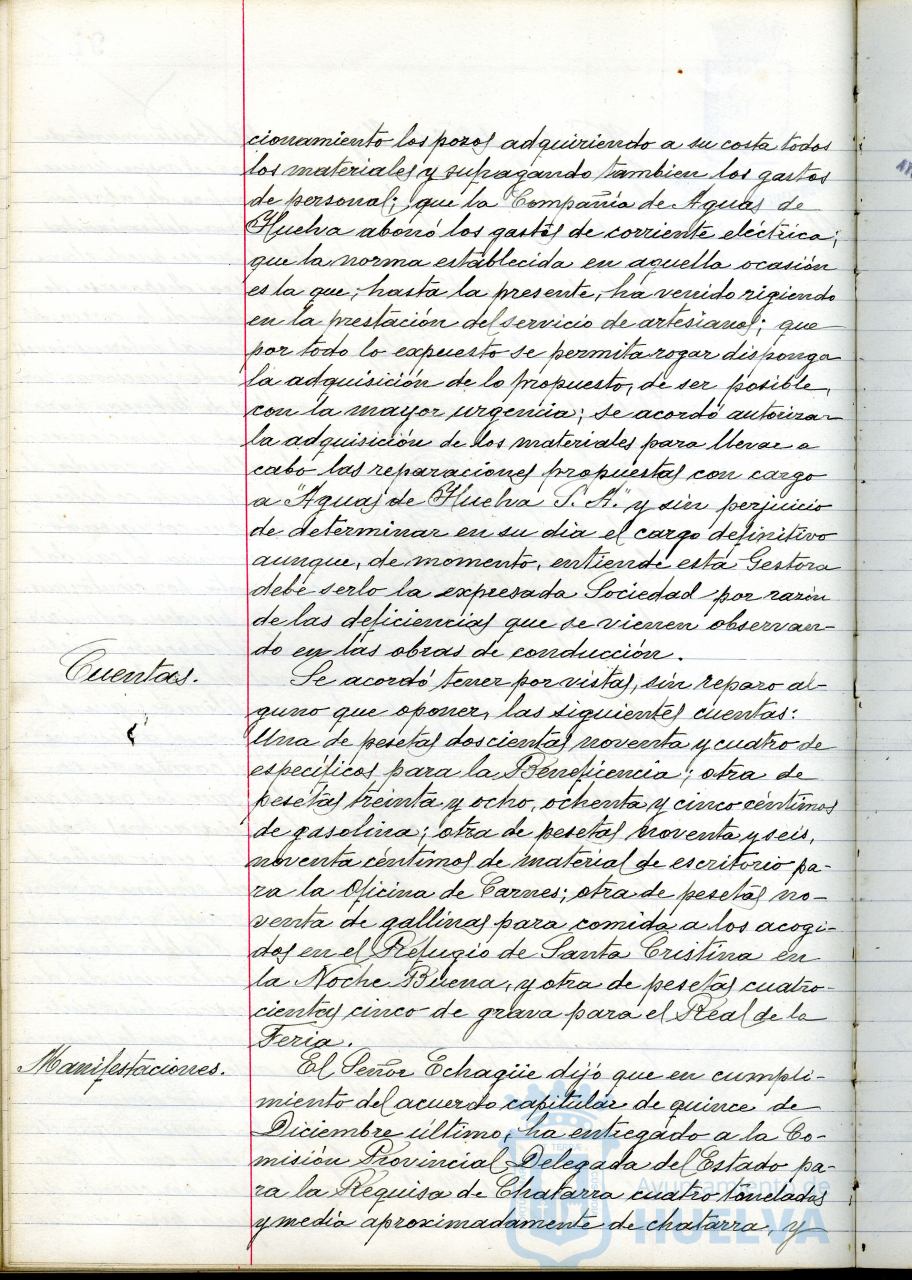 cionamiento los pozos adquiriendo a su costa todos
los materiales y sufragando tambien los gastos
de personal; que la Compañía de Aguas de
Huelva abonó los gastos de corriente eléctrica;
que la norma establecida en aquella ocasión
es la que, hasta la presente, ha venido rigiendo
en la prestación del servicio de artesianos; que
por todo lo expuesto se permita rogar disponga
la adquisición de lo propuesto, de ser posible,
con la mayor urgencia; se acordó autorizar
la adquisición de los materiales para llevar a
cabo las reparaciones propuestas con cargo
a "Aguas de Huelva S.A." y sin perjuicio
de determinar en su dia el cargo definitivo
aunque, de momento, entiende esta Gestora
debe serlo la expresada Sociedad por razón
de las deficiencias que se vienen observan-
do en las obras de conducción.
Cuentas.
Se acordó tener por vistas, sin reparo al-
guno que oponer, las siguientes cuentas:
Una de pesetas doscientas noventa y cuatro de
específicos para la Beneficencia; otra de
pesetas treinta y ocho, ochenta y cinco céntimos
de gasolina; otra de pesetas noventa y seis,
noventa céntimos de material de escritorio pa-
ra la Oficina de Carnes; otra de pesetas no-
venta de gallinas para comida a los acogi-
dos en el Refugio de Santa Cristina en
la Noche Buena, y otra de pesetas cuatro-
cientas cinco de grava para el Real de la
Feria.
Manifestaciones.
El Señor Echagüe dijo que en cumpli-
miento del acuerdo capitular de quince de
Diciembre último, ha entregado a la Co-
misión Provincial Delegada del Estado pa-
ra la Requisa de Chatarra cuatro toneladas
y media aproximadamente de chatarra, y
Ayuntamiento de
HUELVA